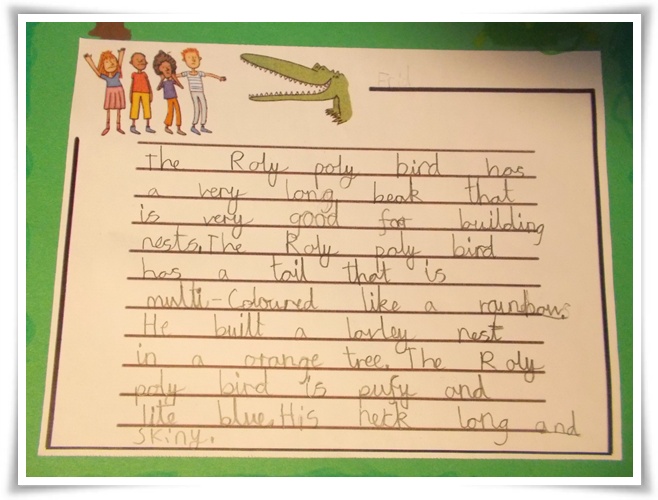 The Roly poly bird has
a very long beak that
is very good for building
nests. The Roly poly bird
has a tail that is
multi-Coloured like a raindow.
He built a lovley nest
in a orange tree. The Roly
poly bird is pufy and
lite blue. His neck long and
skiny.